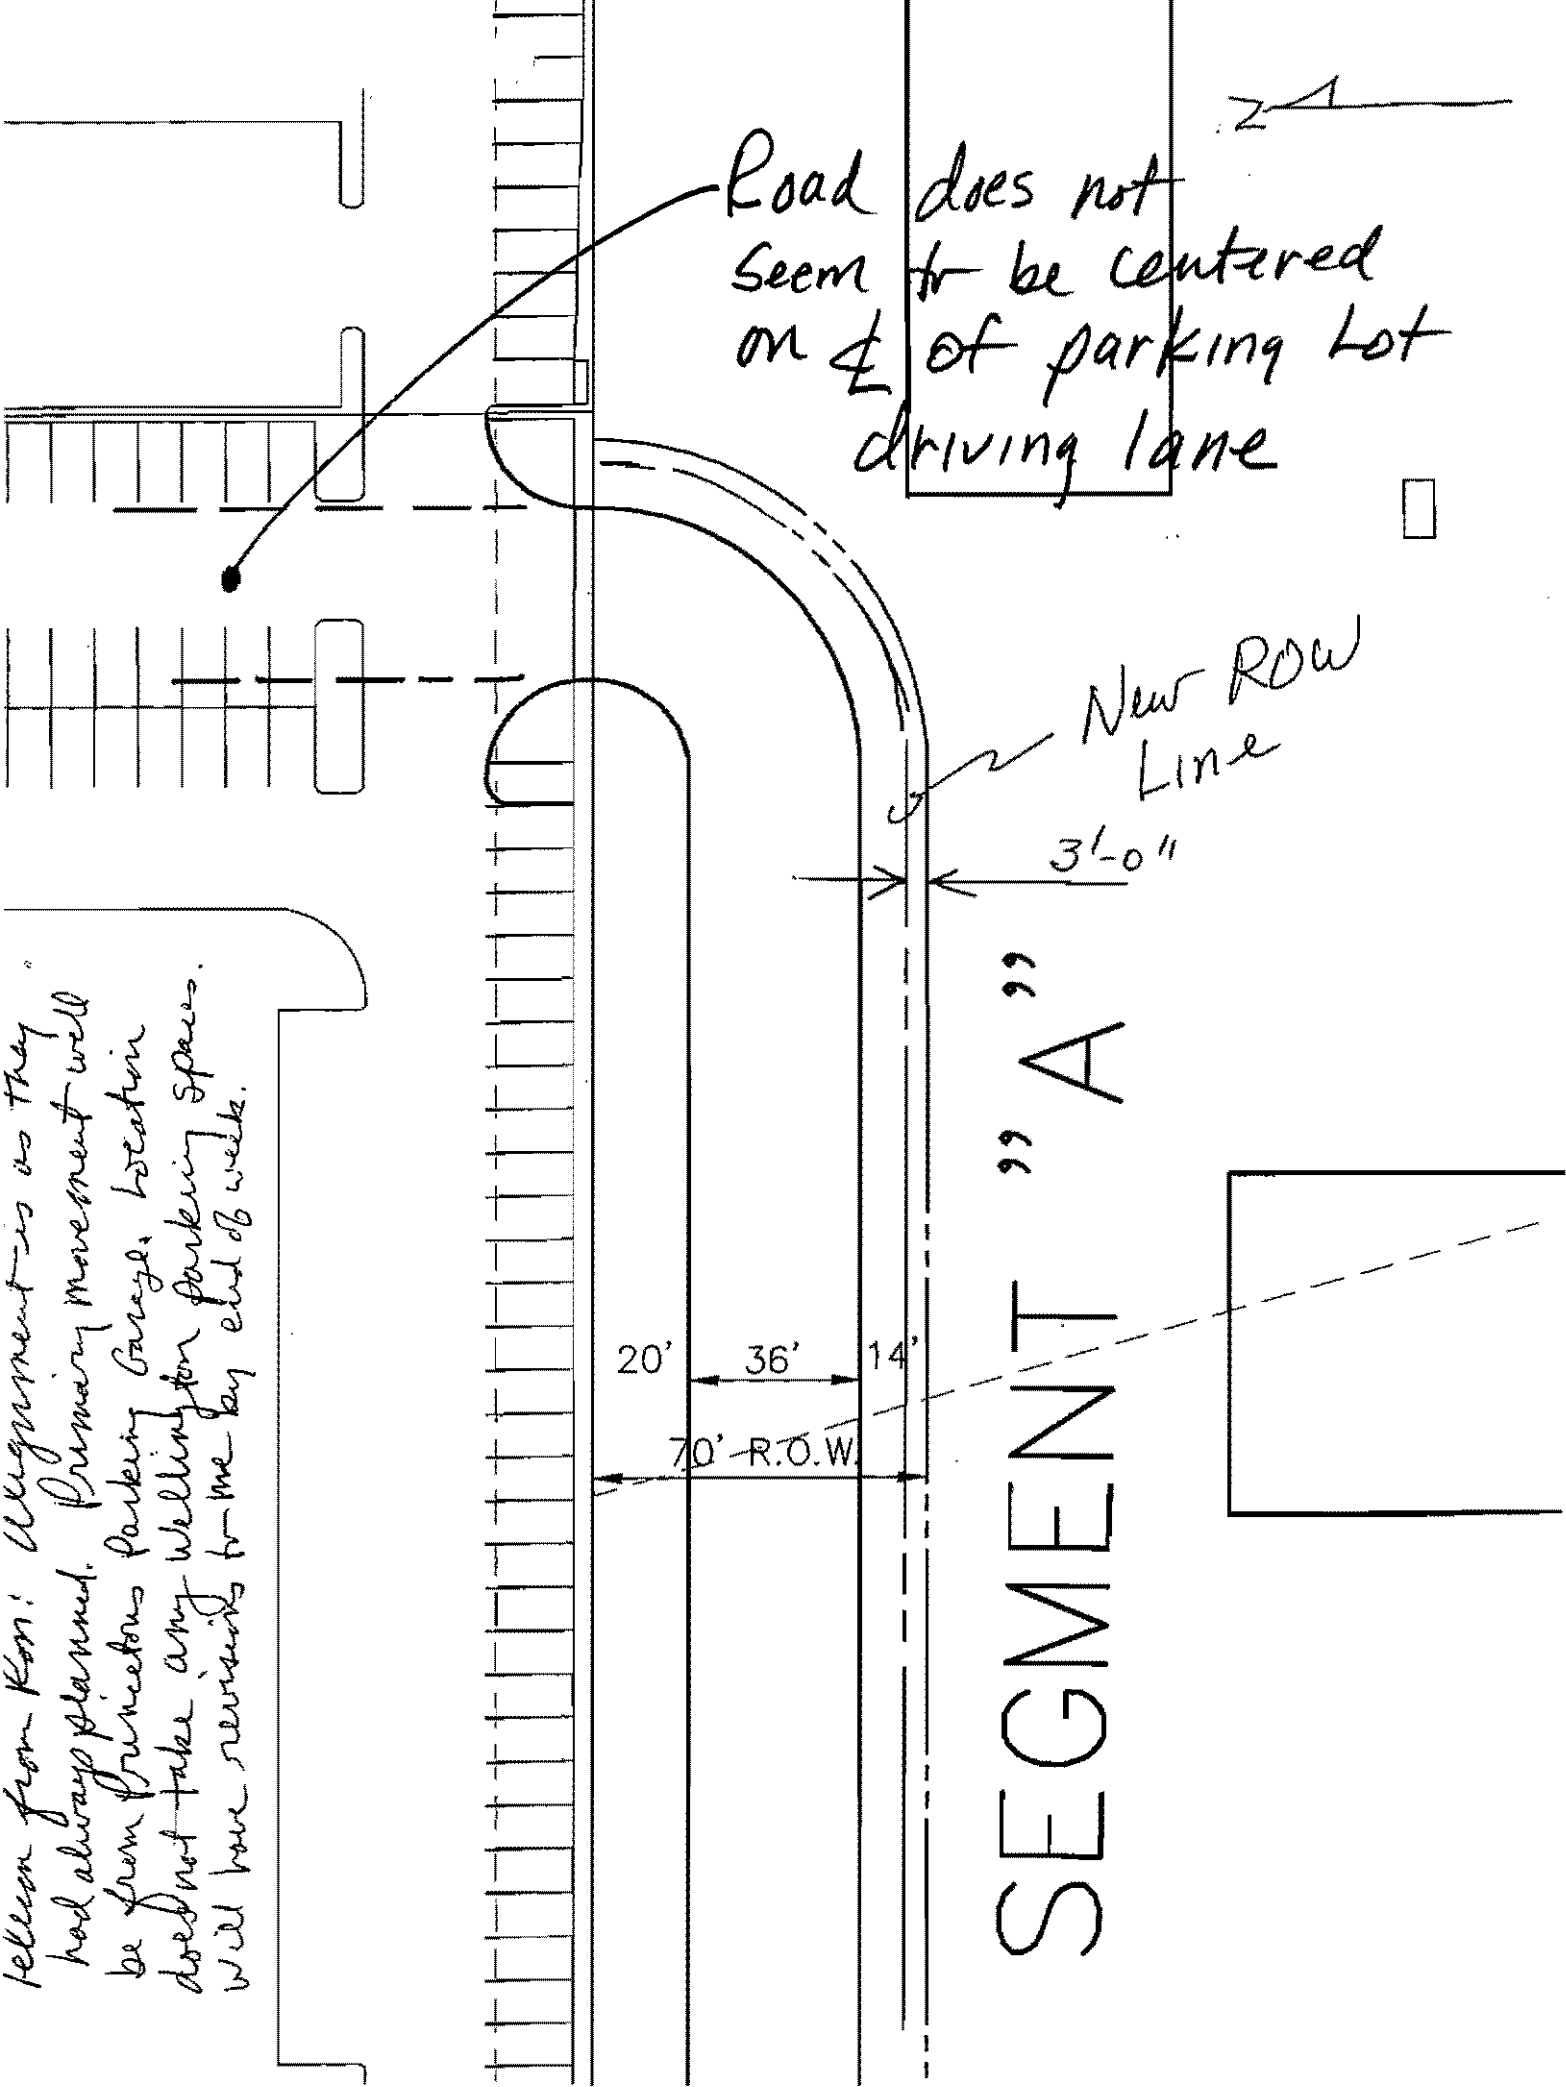 N
Road does not
seem to be centered
on ℄ of parking Lot
driving lane
New ROW
Line
3'-0"
20' 36' 14'
70' R.O.W.
SEGMENT "A"
telecon from Ron: Alignment is as they
had always planned. Primary movement will
be from Princetons Parking Garage. Location
does not take any Wellington parking spaces.
Will have revisions to me by end of week.